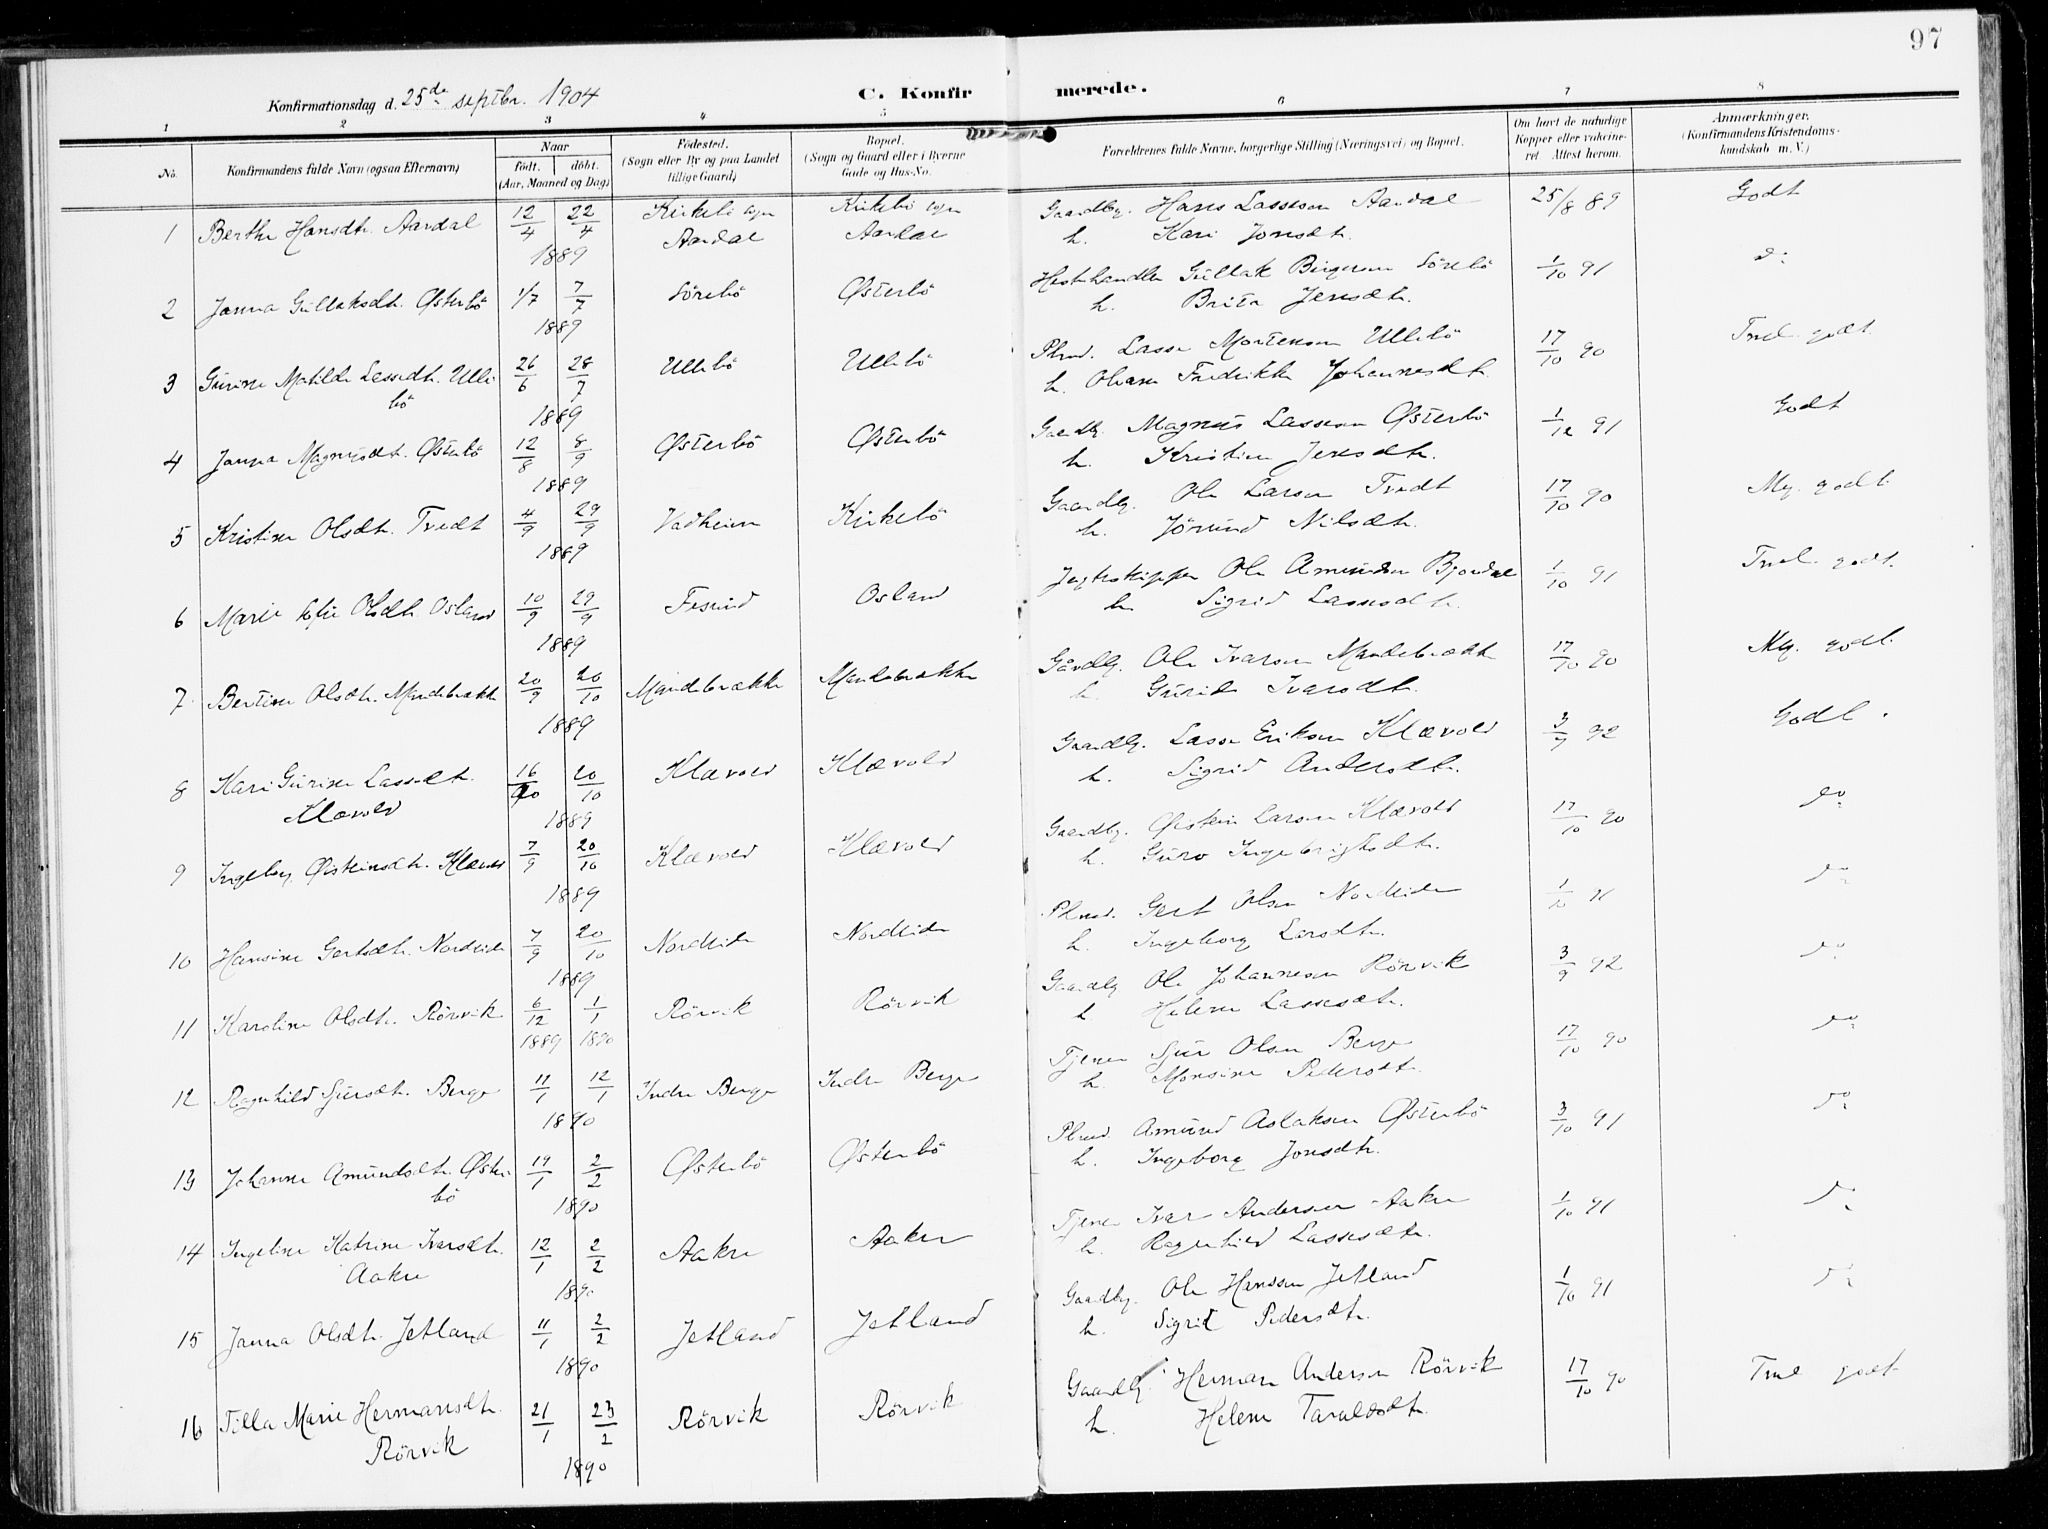 97
Konfirmationsdag d. 25de septbr. 1904 C. Konfirmerede.
1 2 3 4 5 6 7 8
No. Konfirmandens fulde Navn (ogsaa Efternavn) Naar født. døbt. (Aar, Maaned og Dag) Fødested. (Sogn eller By og paa Landet tillige Gaard) Bopæl. (Sogn og Gaard eller i Byerne Gade og Hus-No. Forældrenes fulde Navne, borgerlige Stilling (Næringsvei) og Bopæl. Om havt de naturlige Kopper eller vakcineret. Attest herom. Anmærkninger. (Konfirmandens Kristendomskundskab m. V.)
1 Berthe Hansdtr. Aardal 12/4 22/4 Kirkebö sogn Kirkebö sogn Gaardbg. Hans Lassesen Aardal 25/8 89 Godt
1889 Aardal Aardal h. Kari Jonsdtr.
2 Janna Gullaksdtr. Østerbö 1/7 7/7 Sörebö Østerbö Hestehandler Gullak Birgersen Sörebö 1/10 91 do
1889 h. Brita Jensdtr.
3 Gurine Matilde Lassedtr. Ullebö 26/6 28/7 Ullebö Ullebö Plmd. Lasse Mortensen Ullebö 17/10 90 Tmel. godt.
1889 h. Oliane Fredrikke Johannesdtr.
4 Janna Magnusdtr. Østerbö 12/8 8/9 Østerbö Østerbö Gaardbg. Magnus Lassesen Østerbö 1/12 91 Godt
1889 h. Kristine Jensdtr.
5 Kristine Olsdtr. Tvedt 4/9 29/9 Vadheim Kirkebö Gaardbg. Ole Larsen Tvedt 17/10 90 Mg. godt.
1889 h. Jörund Nilsdtr.
6 Marie Sofie Olsdtr. Osland 10/9 29/9 Osland Jagtskipper Ole Amundsen Bjordal 1/10 91 Tmel. godt.
1889 h. Sigrid Lassesdtr.
7 Bertine Olsdtr. Mandebrække 20/9 20/10 Mandebrække Mandebrække Gårdbg. Ole Ivarsen Mandebrække 17/10 90 Mg. godt.
1889 h. Guride Ivarsdtr.
8 Kari Gurine Lassedtr. 16/10 20/10 Klævold Klævold Gaardbg. Lasse Eriksen Klævold 3/9 92 Godt.
Klævold 1889 h. Sigrid Andersdtr.
9 Ingeborg Øisteinsdtr. Klævold 7/9 20/10 Klævold Klævold Gaardbg. Øistein Larsen Klævold 17/10 90 do
1889 h. Guro Ingebrigtsdtr.
10 Hansine Gertsdtr. Nordeide 7/9 20/10 Nordeide Nordeide Plmd. Gert Olsen Nordeide 1/10 91 do
1889 h. Ingeborg Larsdtr.
11 Karoline Olsdtr. Rörvik 6/12 1/1 Rörvik Rörvik Gaardbg Ole Johannesen Rörvik 3/9 92 do
1889 1890 h Helene Lassesdtr.
12 Ragnhild Sjursdtr. Berge 11/1 12/1 Indre Berge Indre Berge Tjener Sjur Olsen Berge 17/10 90 do
1890 h. Monsine Pedersdtr.
13 Johanne Amundsdtr. Østerbö 19/1 2/2 Østerbö Østerbö Plmd. Amund Aslaksen Østerbö 3/10 91 do
1890 h. Ingeborg Jonsdtr.
14 Ingeline Katrine Ivarsdtr. 12/1 2/2 Aakre Aakre Tjener Ivar Andersen Aakre 1/10 91 do
Aakre 1890 h. Ragnhild Lassesdtr.
15 Janna Olsdtr. Jetland 11/1 2/2 Jetland Jetland Gaardbg. Ole Hanssen Jetland 1/10 91 do
1890 h. Sigrid Pedersdtr.
16 Tilla Marie Hermansdtr. 21/1 23/2 Rörvik Rörvik Gaardbg. Herman Andersen Rörvik 17/10 90 Tmel godt
Rörvik 1890 h. Helene Taraldsdtr.